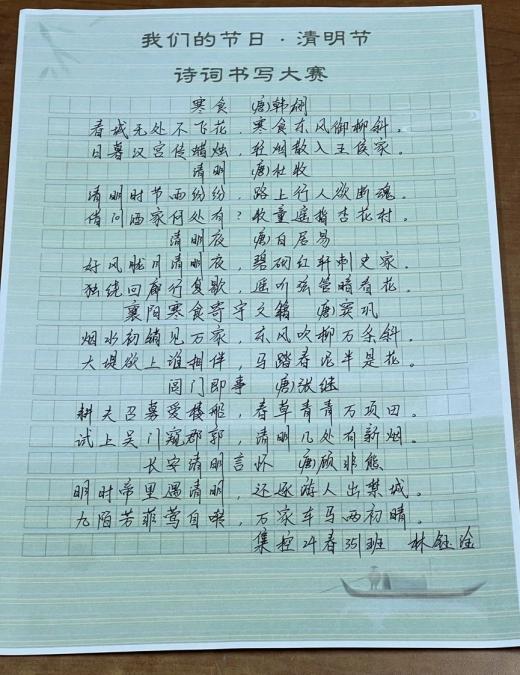 我们的节日·清明节
诗词书写大赛
寒食 (唐)韩翃
春城无处不飞花，寒食东风御柳斜。
日暮汉宫传蜡烛，轻烟散入五侯家。
清明 (唐)杜牧
清明时节雨纷纷，路上行人欲断魂。
借问酒家何处有？牧童遥指杏花村。
清明夜 (唐)白居易
好风胧月清明夜，碧砌红轩刺史家。
独绕回廊行复歇，遥听弦管暗看花。
襄阳寒食寄宇文籍 (唐)窦巩
烟水初销见万家，东风吹柳万条斜。
大堤欲上谁相伴，马踏春泥半是花。
阊门即事 (唐)张继
耕夫召募爱楼船，春草青青万项田。
试上吴门窥郡郭，清明几处有新烟。
长安清明言怀 (唐)顾非熊
明时帝里遇清明，还逐游人出禁城。
九陌芳菲莺自啭，万家车马雨初晴。
集控24春351班 林钰淦